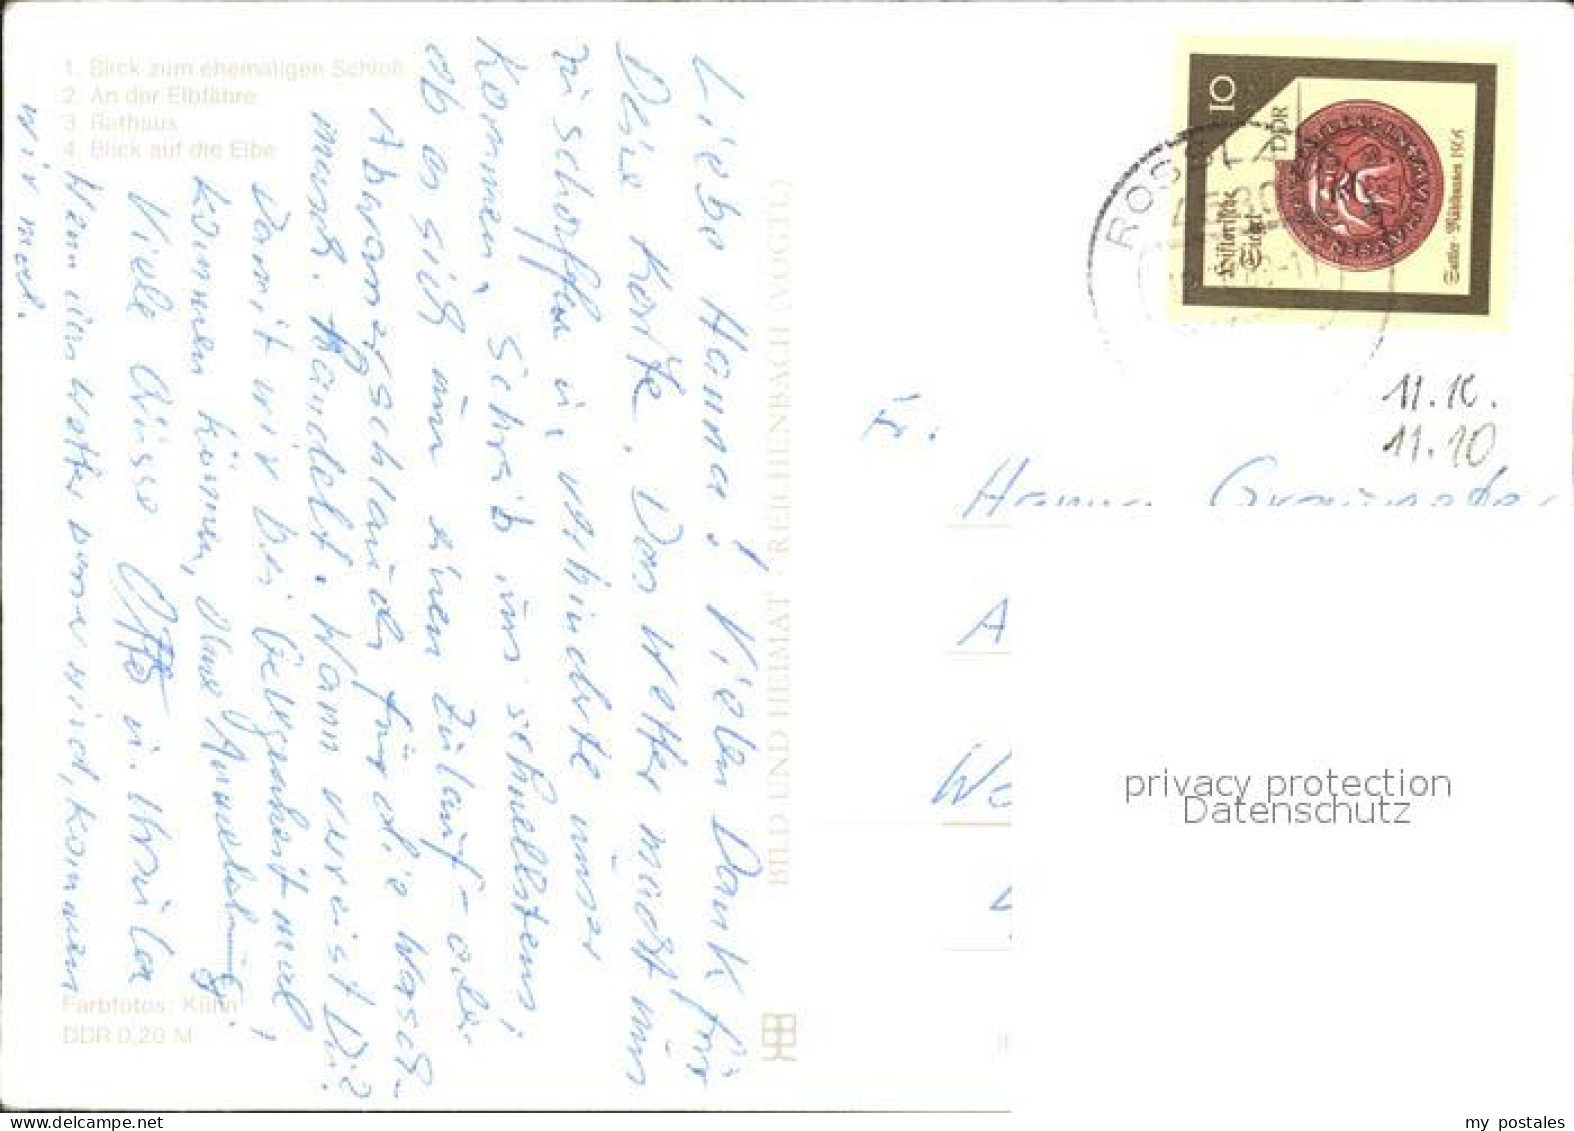 1. Blick zum ehemaligen Schloß
2. An der Elbfähre
3. Rathaus
4. Blick auf die Elbe
Liebe Hanna! Vielen Dank für
Deine Karte. Das Wetter macht uns
zu schaffen u. verhinderte unser
Kommen. Schreib uns schnellstens,
ob es sich um einen Zulauf- oder
Abwasserschlauch für die Wasch-
masch. handelt. Wann verreist Du?
Damit wir bei Gelegenheit mal
kommen können, ohne
Viele Grüsse Otto u. Ursula
Wenn das Wetter besser wird, kommen
wir mal.
Farbfotos: Kühn
DDR 0,20 M
BILD UND HEIMAT · REICHENBACH (VOGTL)
10
DDR
Historische
Siegel
Sattler · Mühlhausen 1668
ROST
11.10.
11.10
Fr.
Hanna
A
We
privacy protection
Datenschutz
my postales